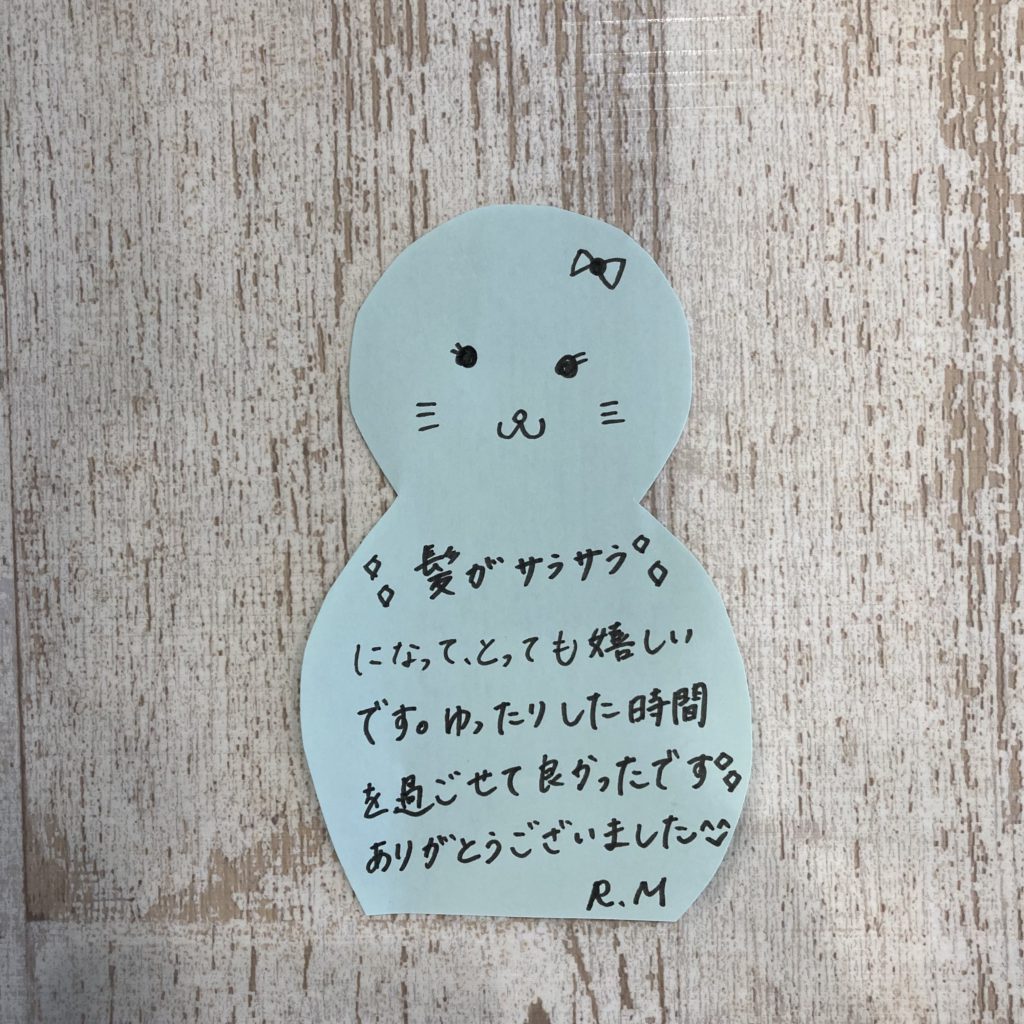 髪がサラサラ
になって、とっても嬉しい
です。ゆったりした時間
を過ごせて良かったです
ありがとうございました^^
R.M